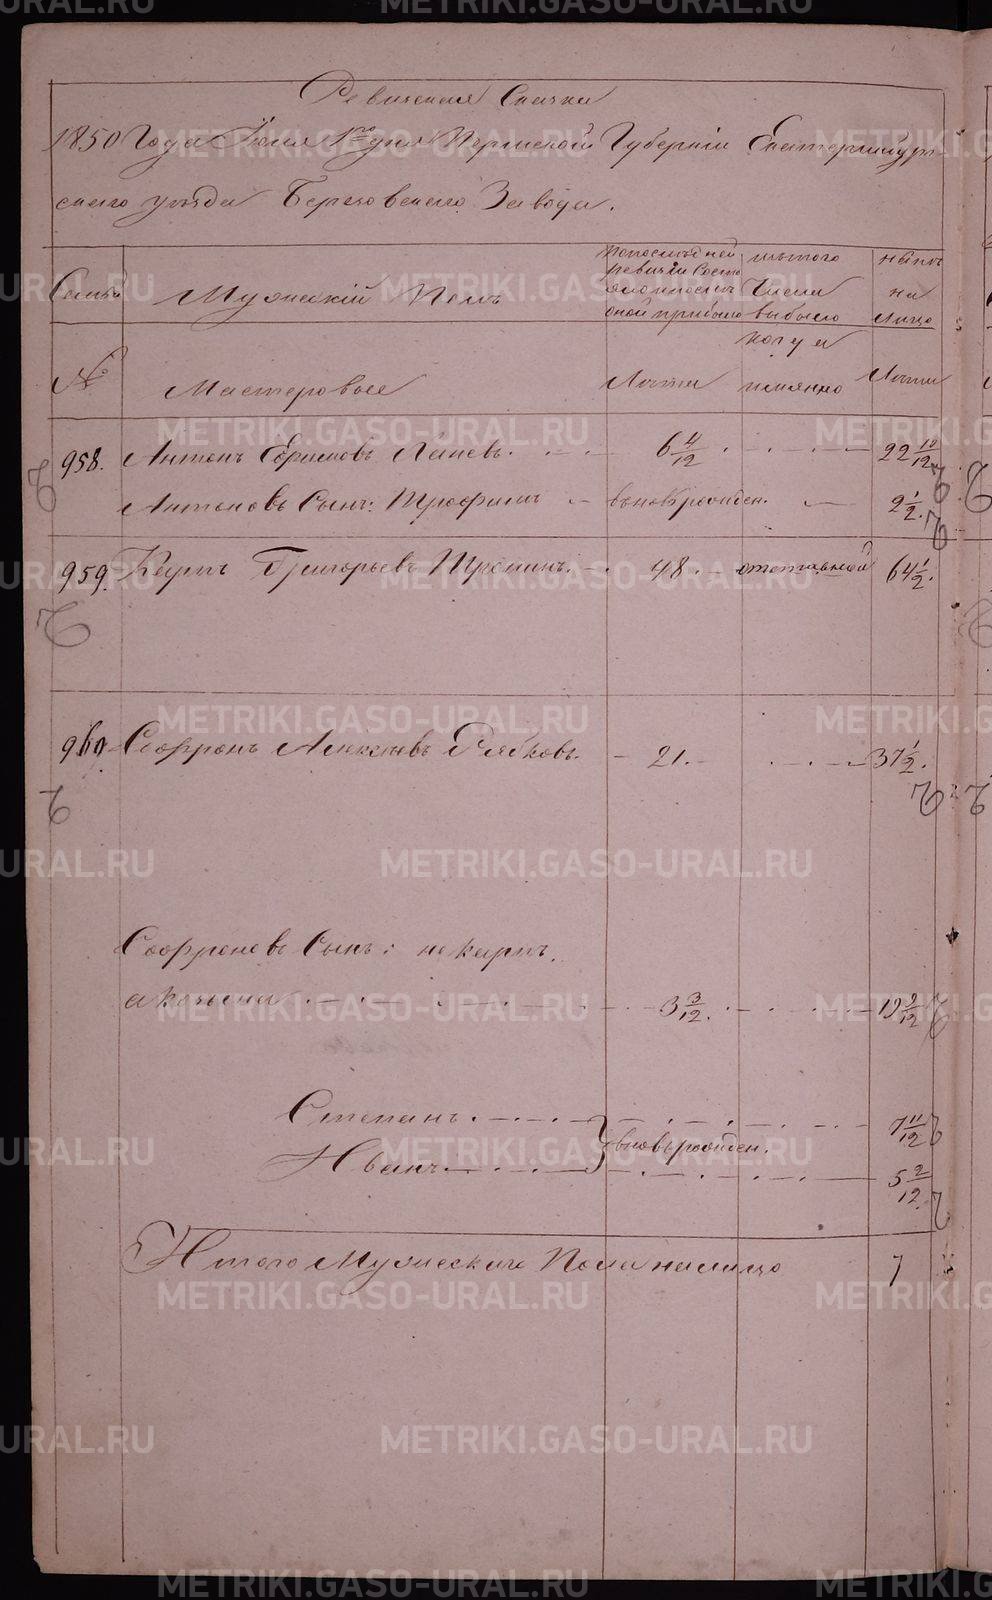 Ревизская Сказка
1850 Года Іюля 1го дня Пермской Губерніи Екатеринбург-
скаго уѣзда Березовскаго Завода.
Семьи Мужескій Полъ По последней ревизіи состояло и после оной прибыло Изъ того Числа выбыло Нынѣ на лицо
когда
№ Мастеровые Лѣта имянно Лѣта
958. Антонъ Ефимовъ Ланевъ. 6 11/12 22 10/12
Антоновъ Сынъ: Трофимъ вновь рожден. 2 1/2.
959. Карпъ Григорьевъ Тронинъ. 48. отставной 64 1/2.
960. Софронъ Алексѣевъ Рябковъ. 21. 37 1/2.
Софроновъ Сынъ: не Карпъ.
а Касьянъ 3 3/12. 19 9/12
Степанъ. 7 11/12
вновь рожден.
Иванъ. 5 2/12.
Итого Мужескаго Пола налицо 7
METRIKI.GASO-URAL.RU